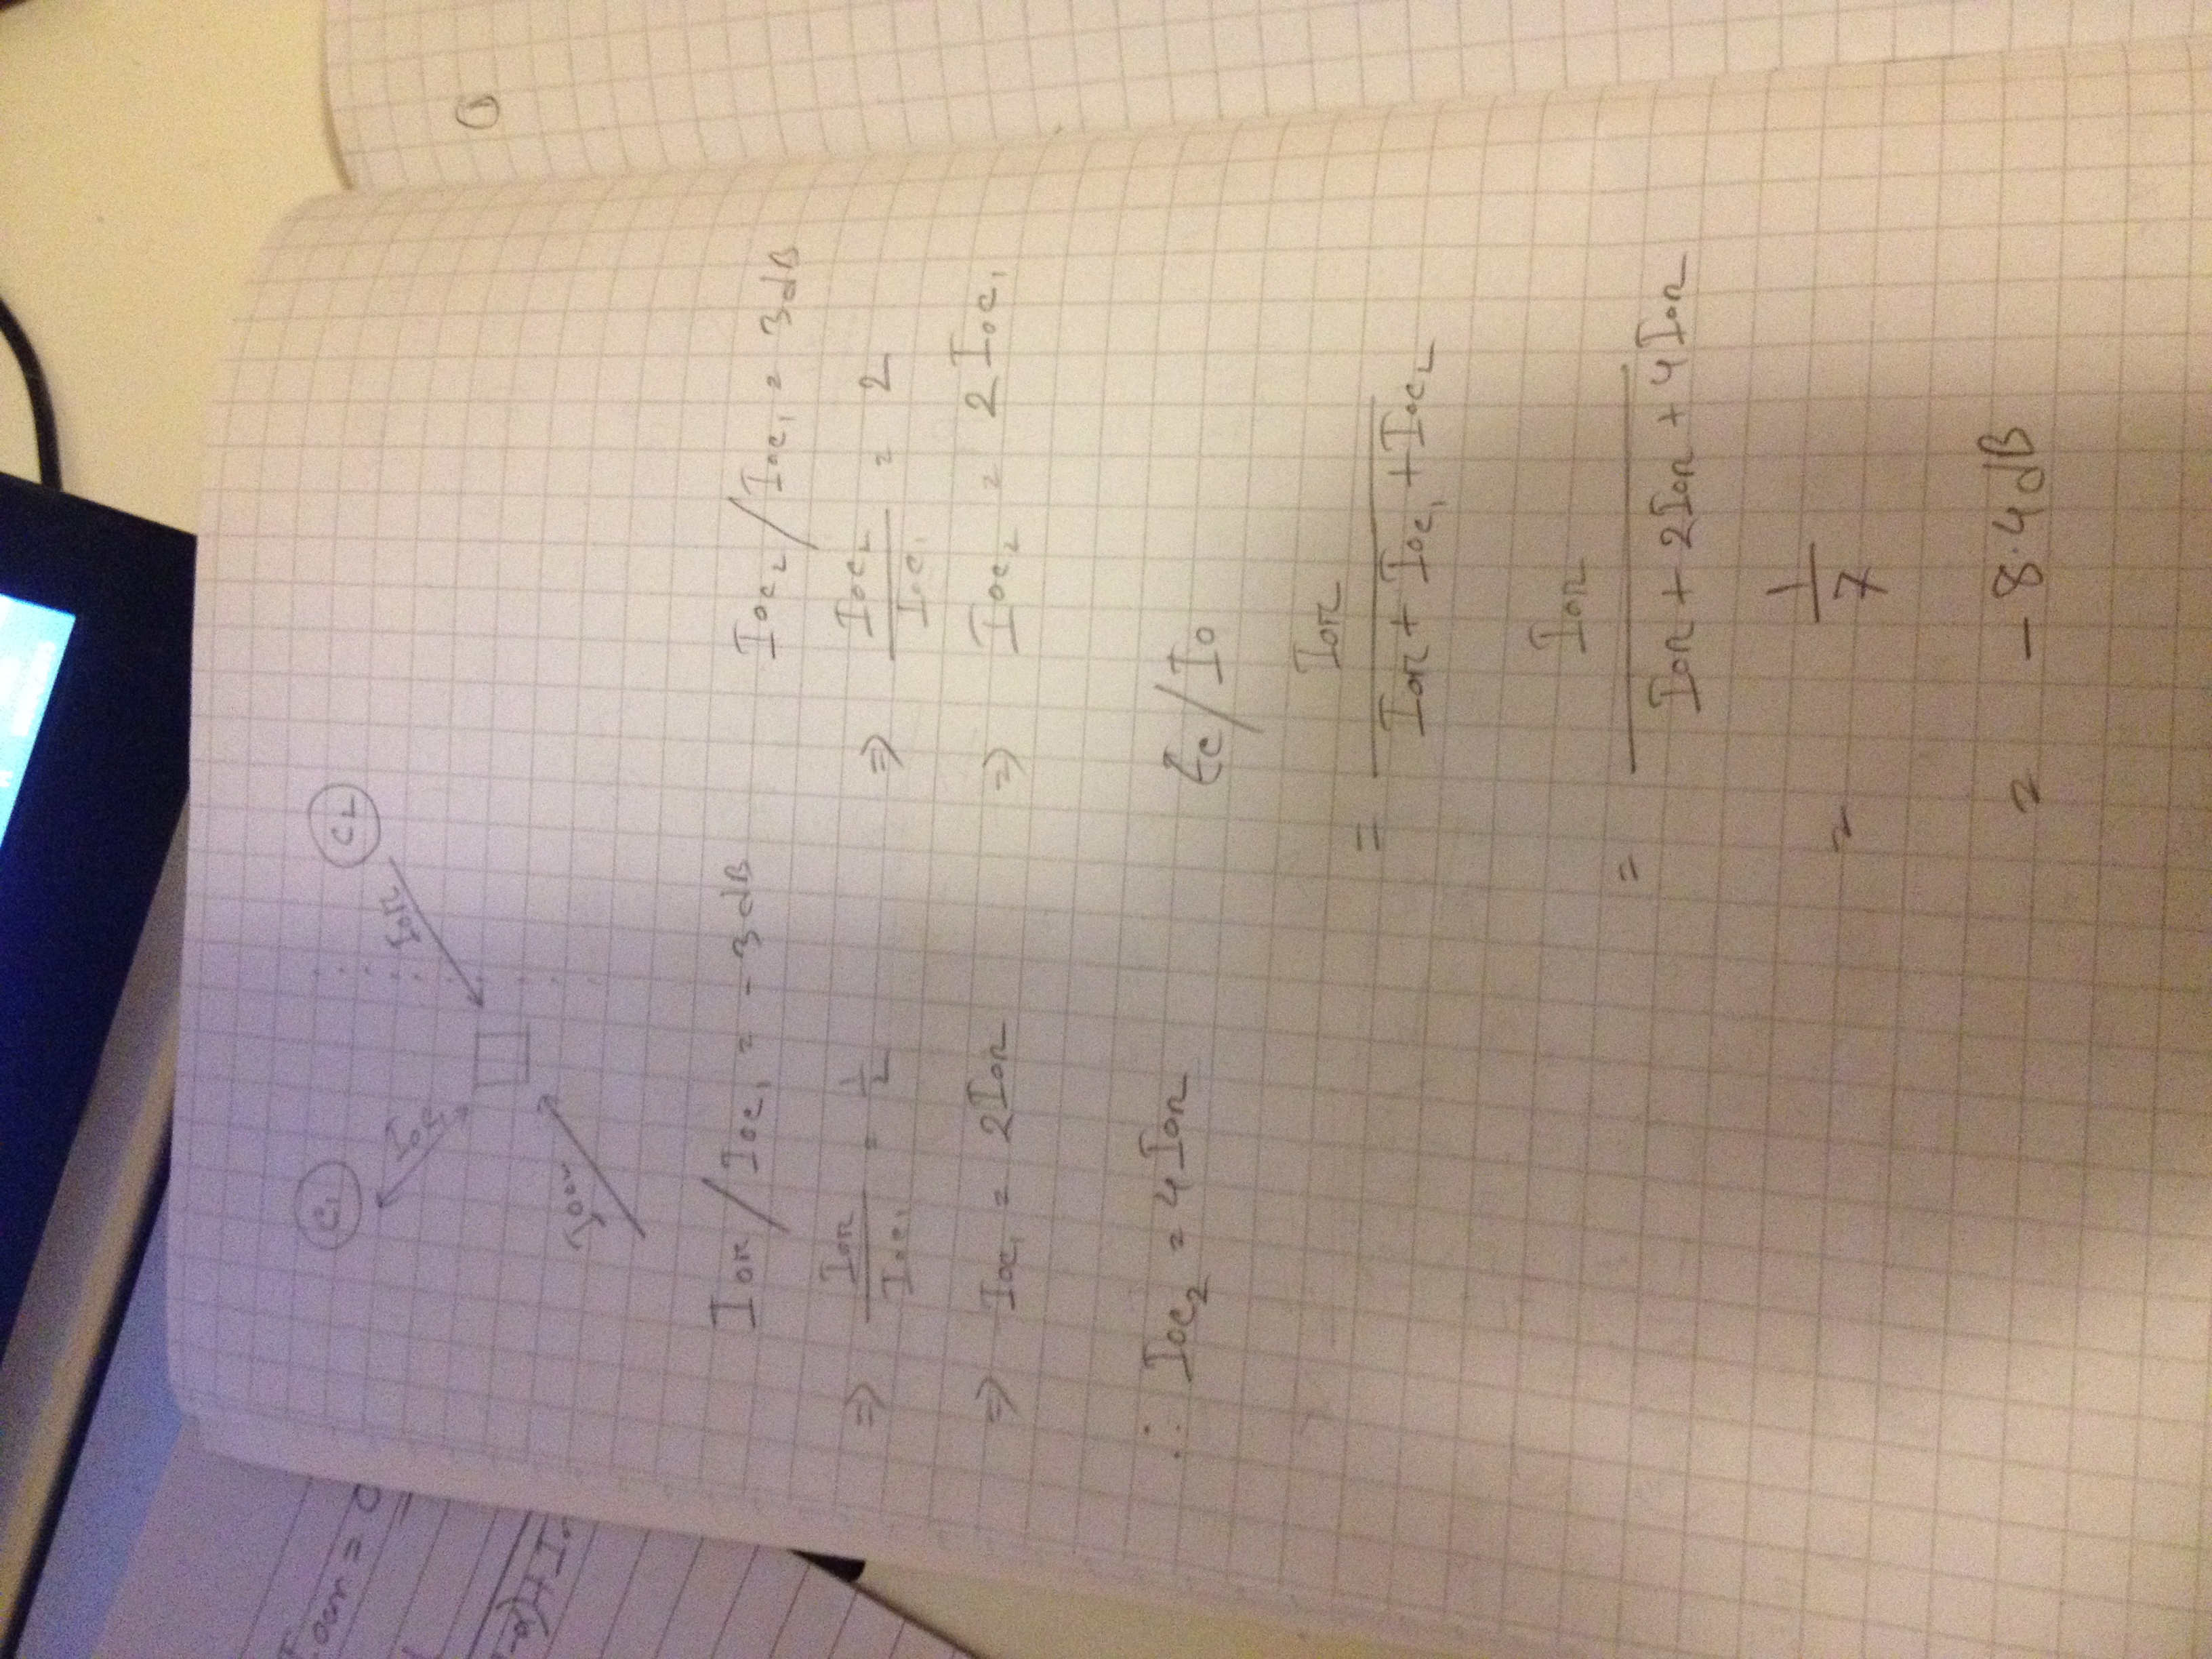 Ioar = 0
1-α) + Io
C1
C2
Ior
①
Ior / Ioc₁ = - 3 dB
Ioc₂ / Ioc₁ = 3 dB
⇒ Ior / Ioc₁ = 1/2
⇒ Ioc₂ / Ioc₁ = 2
⇒ Ioc₁ = 2 Ior
⇒ Ioc₂ = 2 Ioc₁
∴ Ioc₂ = 4 Ior
Ec / Io
= Ior / Ior + Ioc₁ + Ioc₂
= Ior / Ior + 2 Ior + 4 Ior
= 1/7
= - 8.4 dB